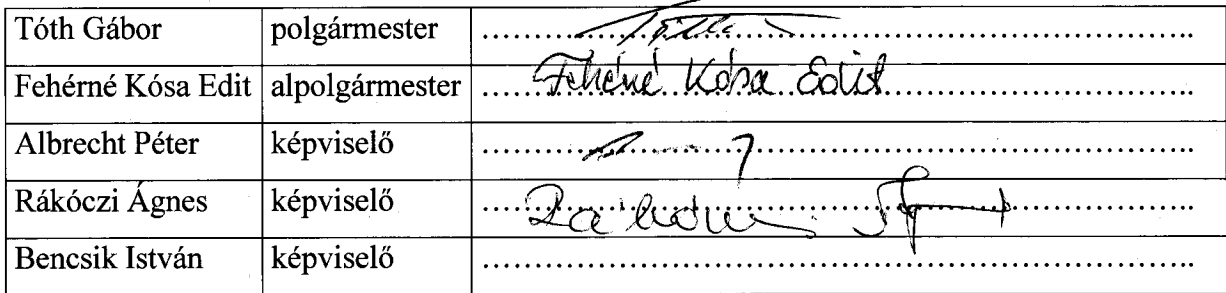 Tóth Gábor polgármester ........................................
Fehérné Kósa Edit alpolgármester Fehérné Kósa Edit
Albrecht Péter képviselő ........................................
Rákóczi Ágnes képviselő ........................................
Bencsik István képviselő ........................................